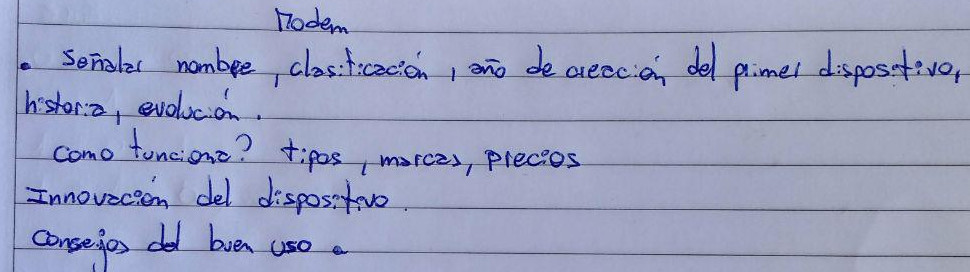 Modem
• Señalar nombre, clasificación, año de creección del primer dispositivo,
historia, evolución.
Como funciona? tipos, marcas, precios
Innovación del dispositivo.
Consejos del buen uso.